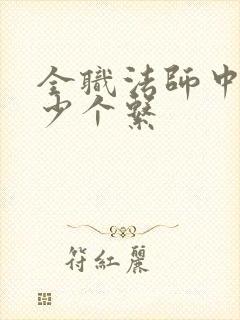 全職法師中
少个繫
符紅麗